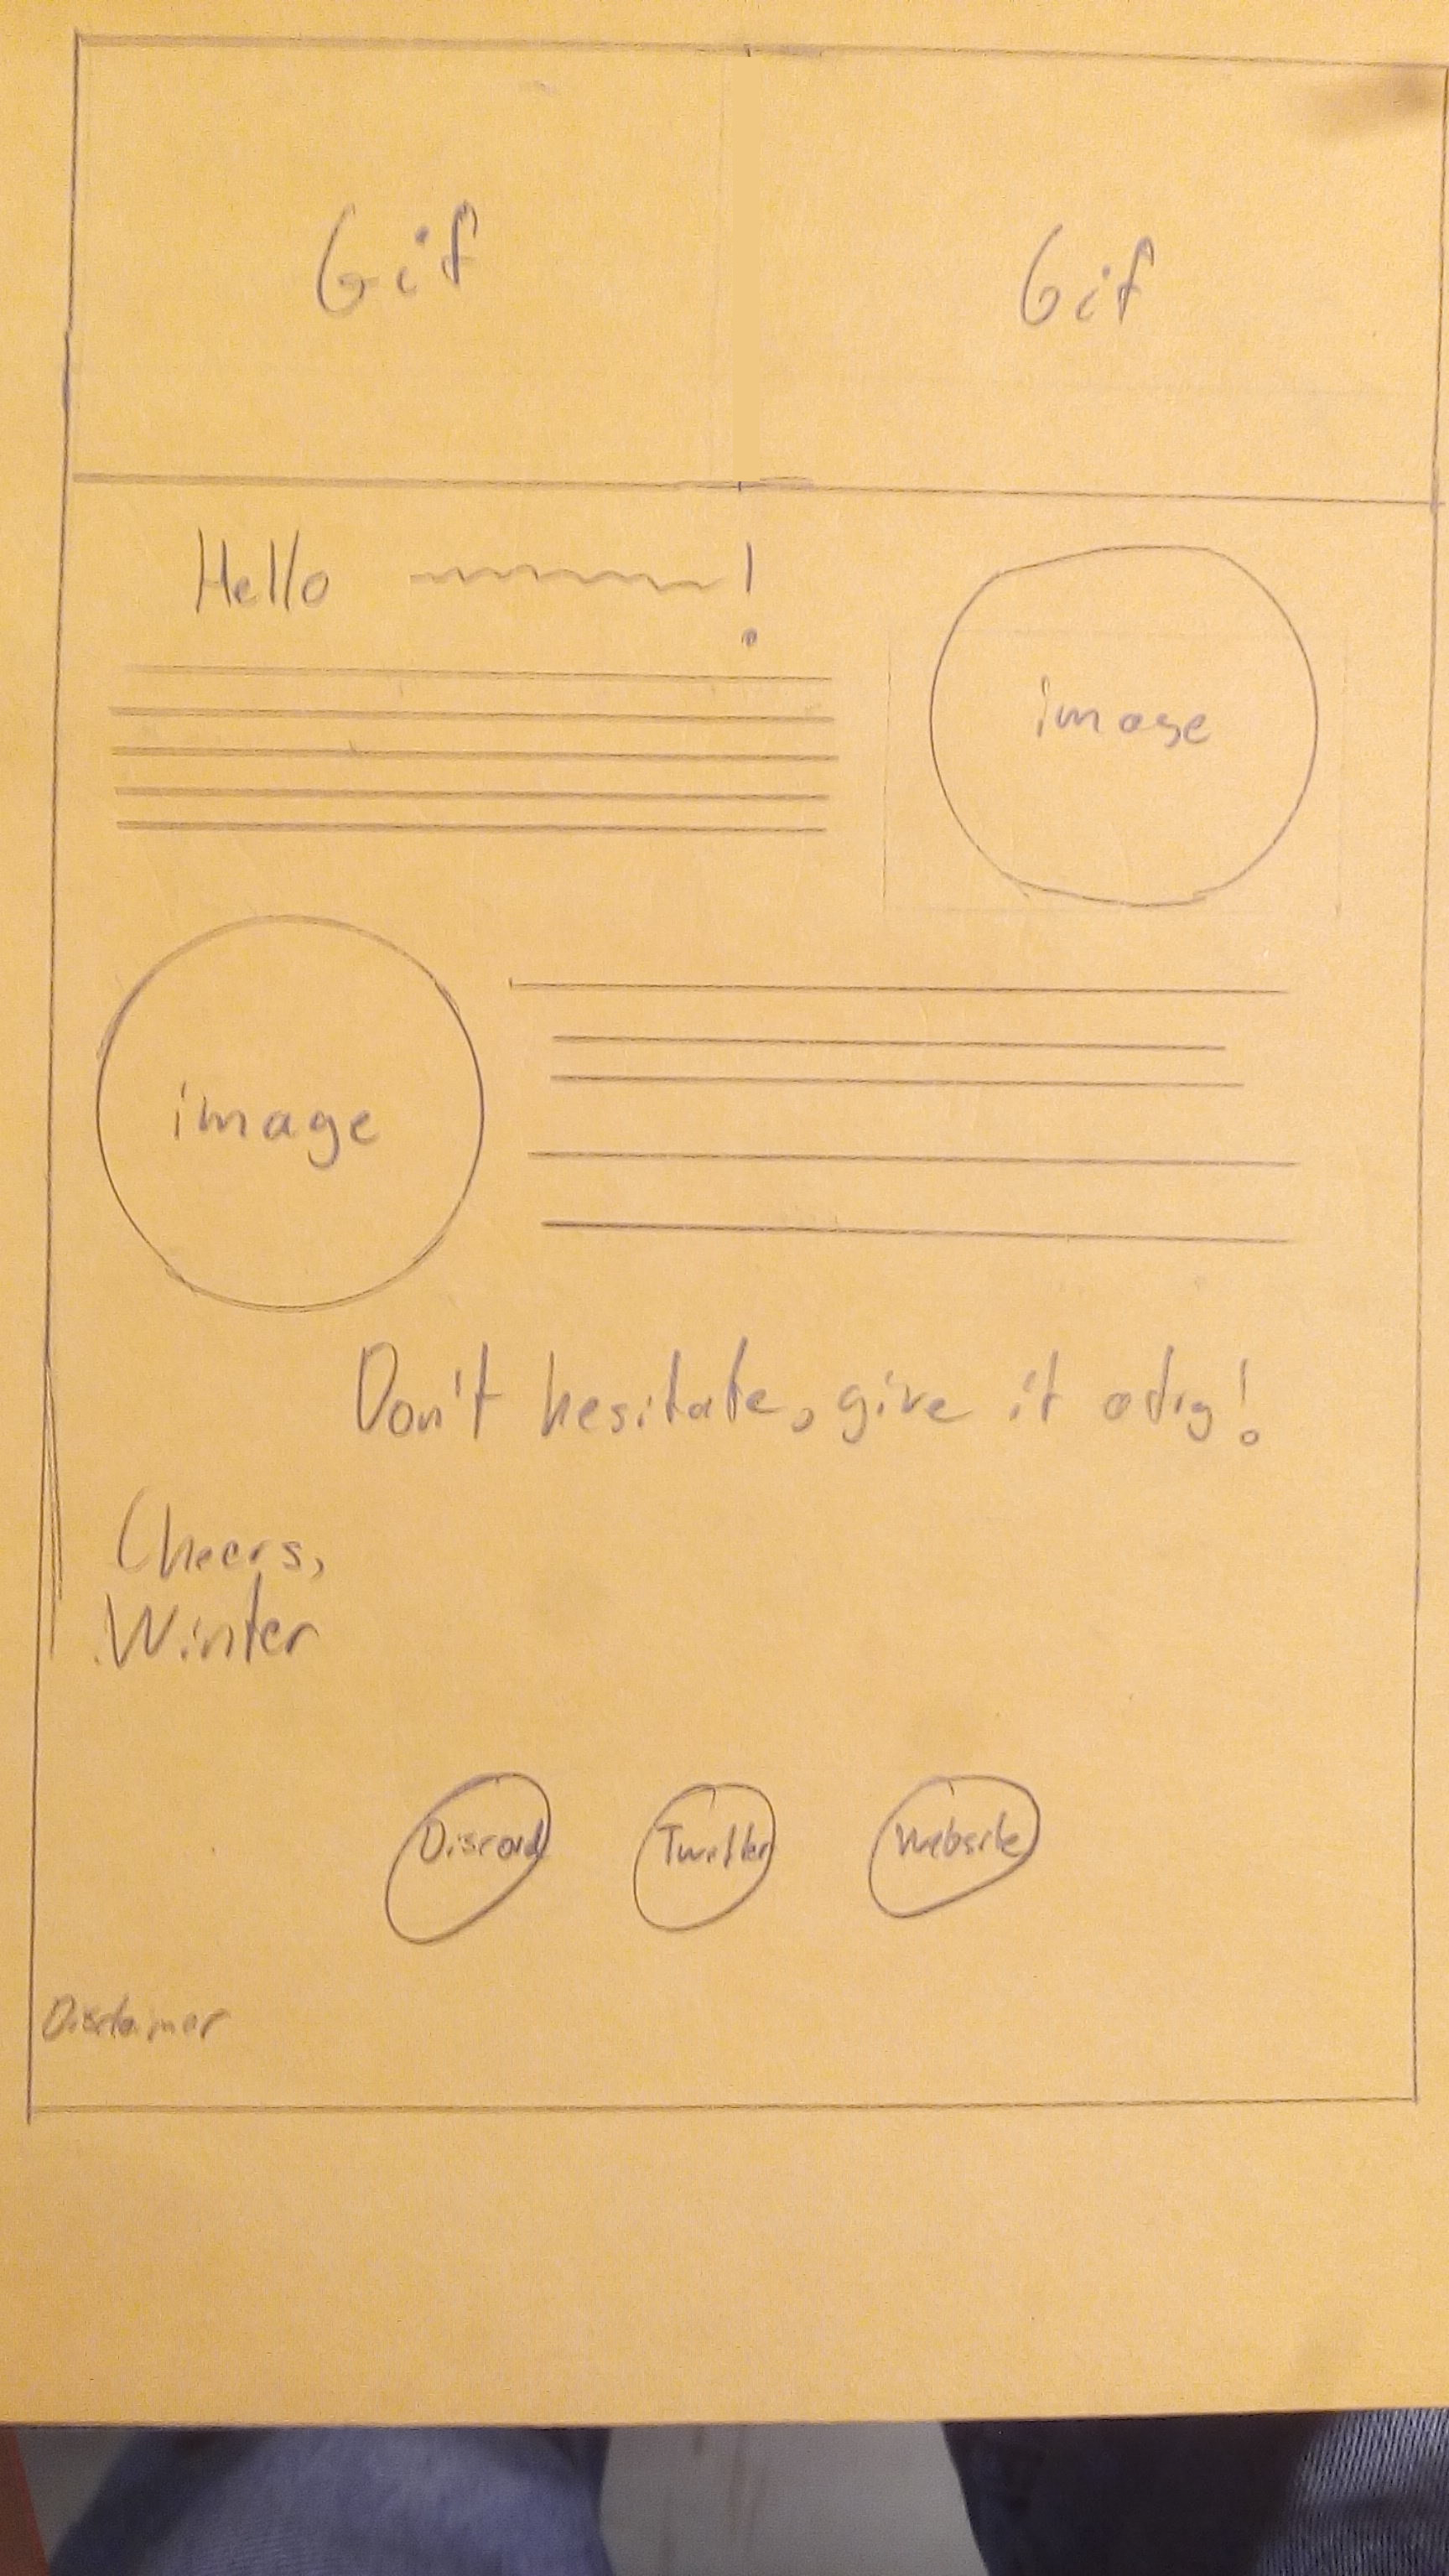 Gif Gif
Hello !
image
image
Don't hesitate, give it a try!
Cheers,
Winter
Discord Twitter Website
Disclaimer